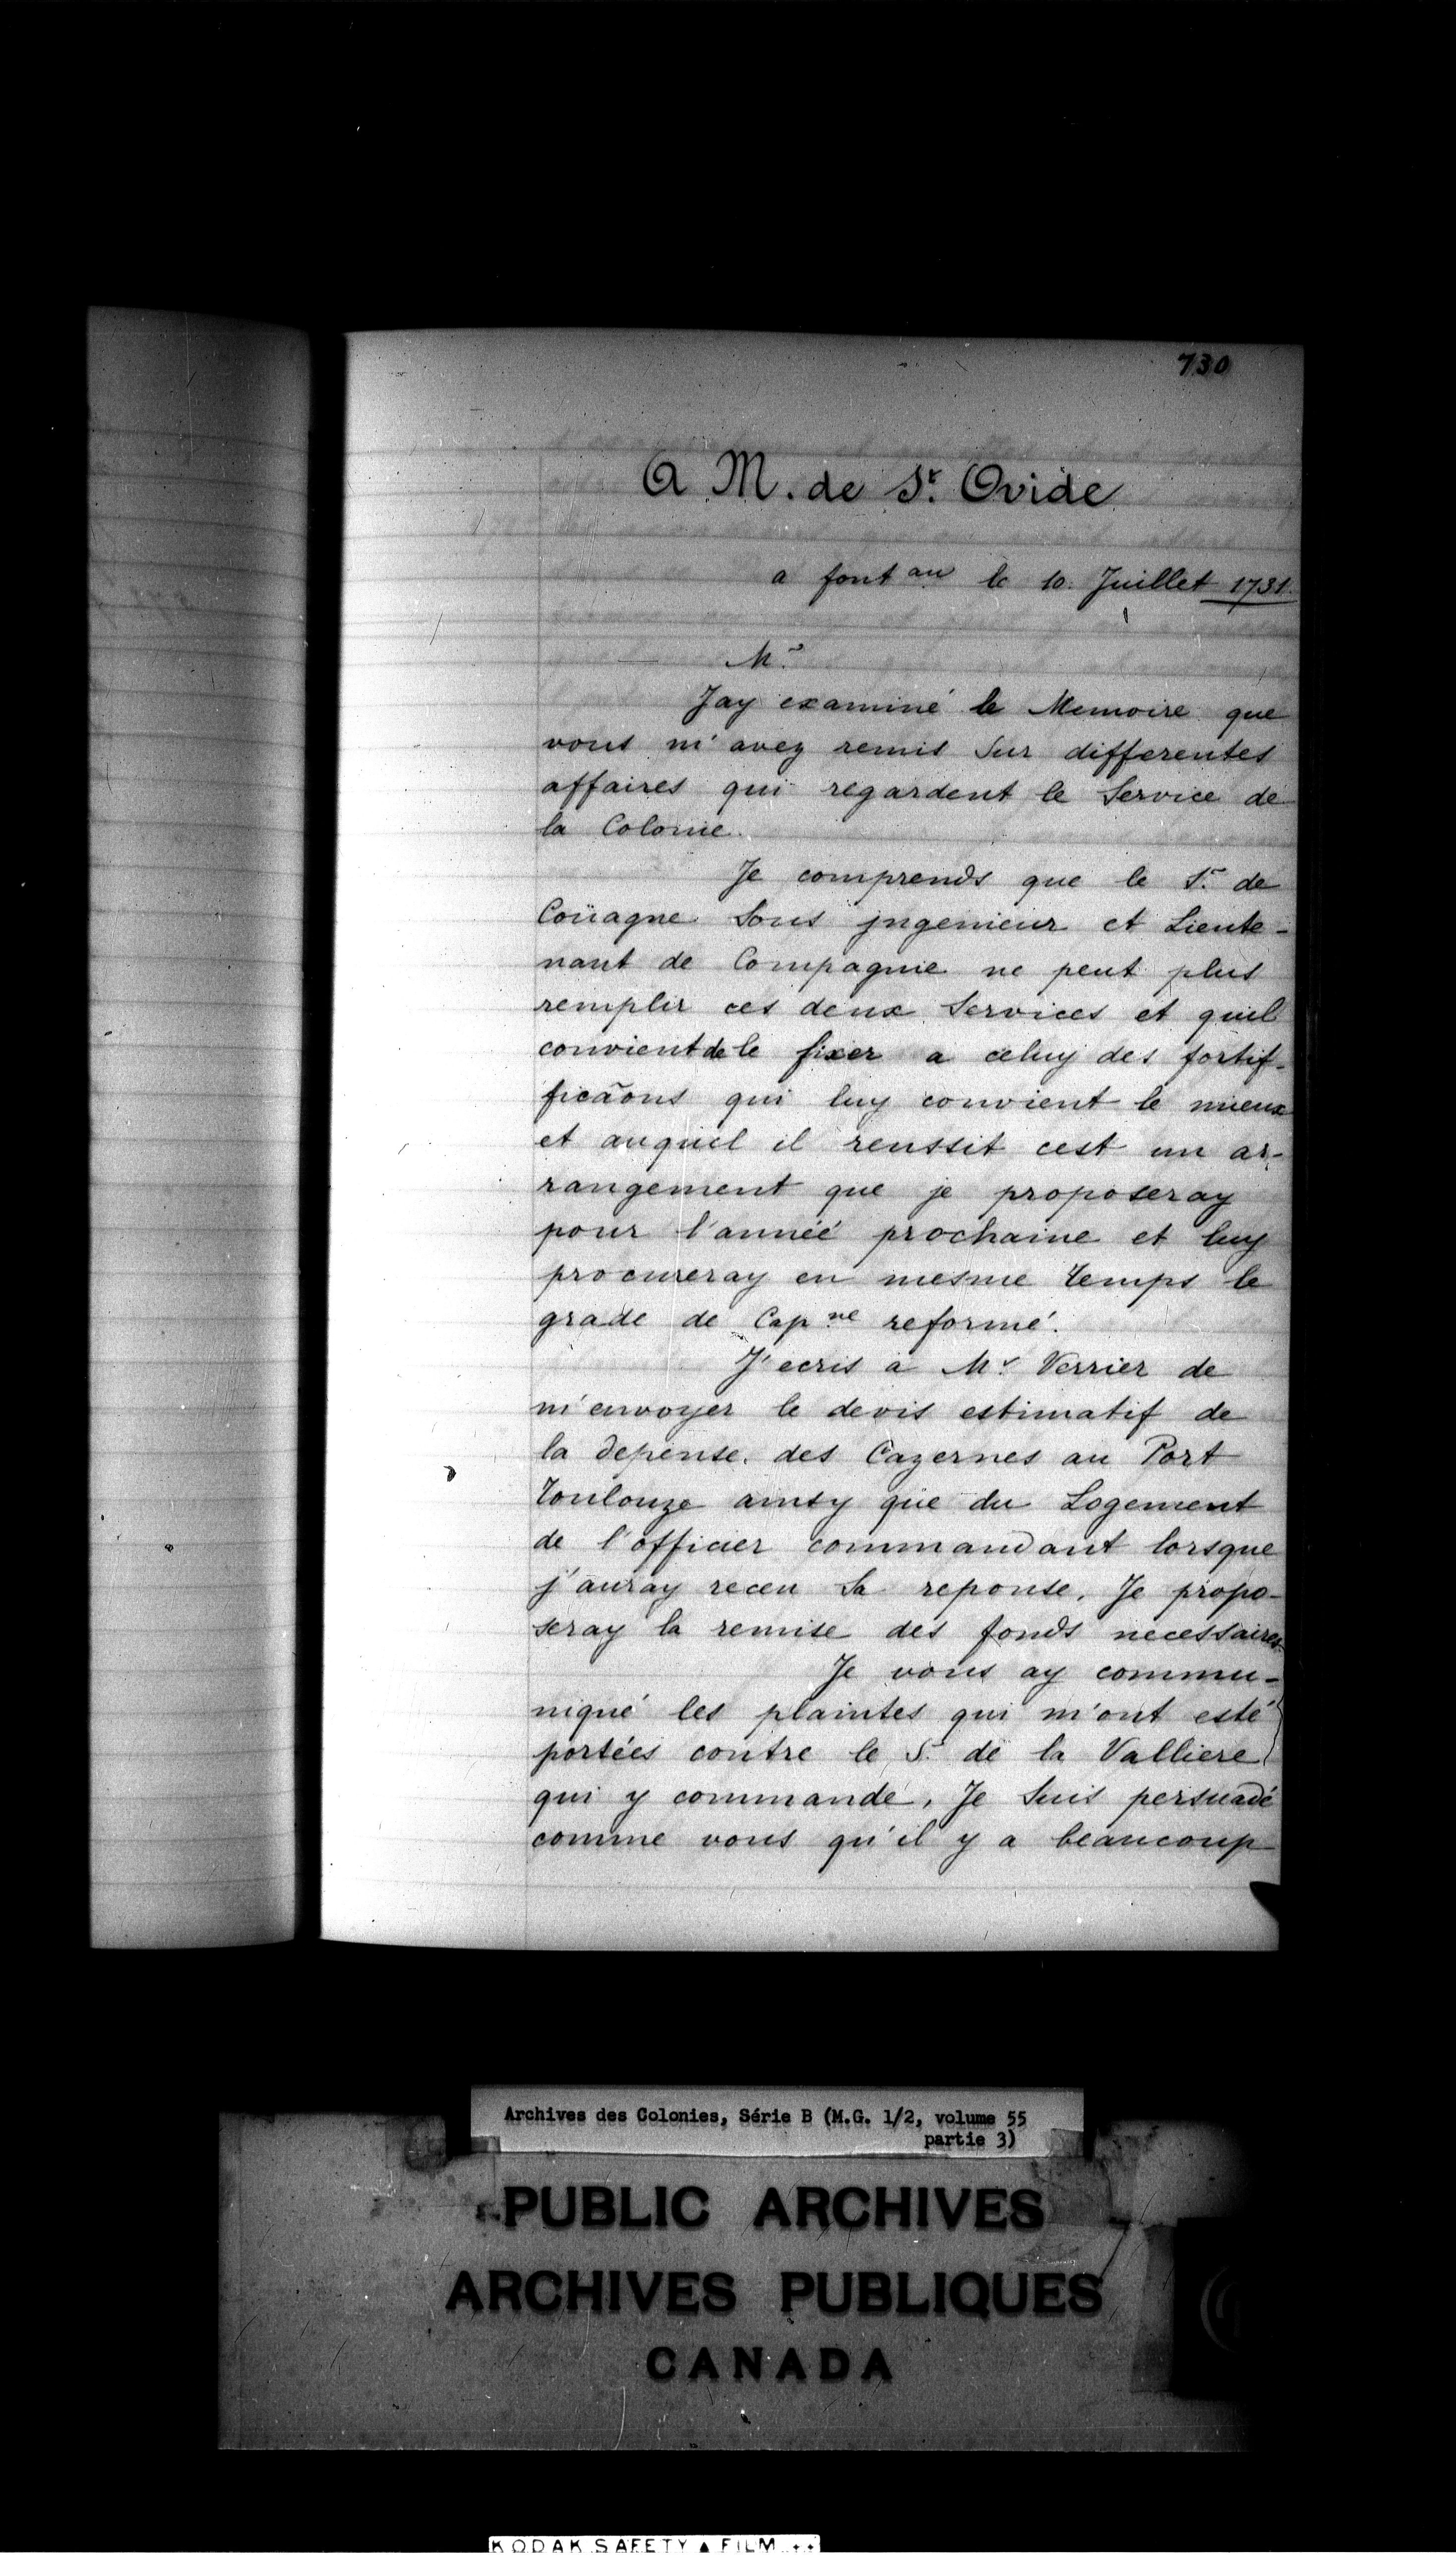 730
A M. de St. Ovide
a font au le 10. Juillet 1731.
Mr.
Jay examiné le Memoire que
vous m'avez remis Sur differentes
affaires qui regardent le Service de
la Colonie.
Je comprends que le Sr. de
Coüagne Sous jngenieur et Lieute-
nant de Compagnie ne peut plus
remplir ces deux Services et quil
convient de le fixer a celuy des fortif-
ficãons qui luy convient le mieux
et auquel il reussit cest un ar-
rangement que je proposeray
pour l'année prochaine et luy
procureray en mesme temps le
grade de Capne reformé.
J'ecris a Mr. Verrier de
m'envoyer le devis estimatif de
la depense. des Cazernes au Port
Toulouze ainsy que du Logement
de l'officier commandant lorsque
j'auray receu Sa reponse. Je propo-
seray la remise des fonds necessaires.
Je vous ay commu-
niqué les plaintes qui m'ont esté
portées contre le S. de la Valliere
qui y commande, Je Suis persuadé
comme vous qu'il y a beaucoup
Archives des Colonies, Série B (M.G. 1/2, volume 55
partie 3)
PUBLIC ARCHIVES
ARCHIVES PUBLIQUES
CANADA
KODAK SAFETY ▲ FILM